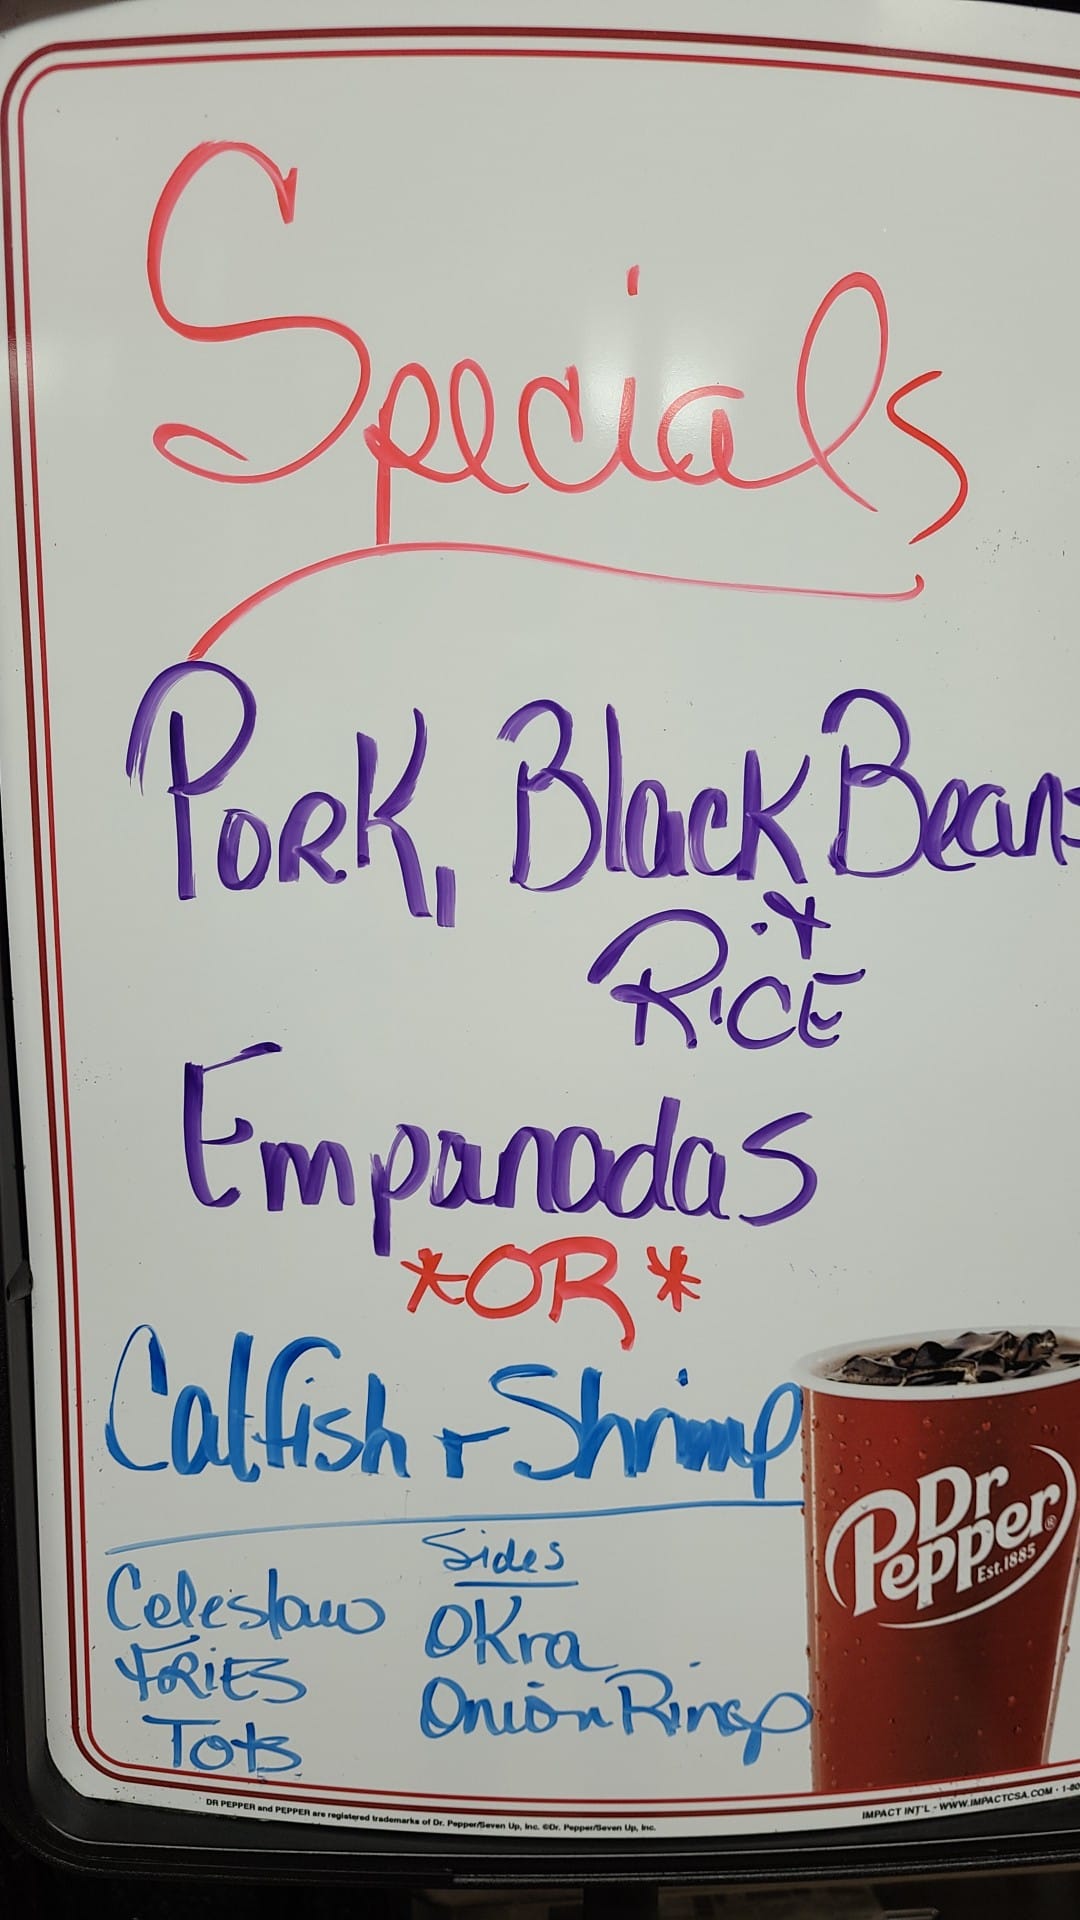 Specials
Pork, Black Beans
+
RICE
Empanadas
*OR*
Catfish + Shrimp
Sides
Celeslaw
FRIES
Tots
OKra
Onion Rings
Dr
Pepper®
Est.1885
DR PEPPER and PEPPER are registered trademarks of Dr. Pepper/Seven Up, Inc. ©Dr. Pepper/Seven Up, Inc.
IMPACT INT'L - WWW.IMPACTCSA.COM · 1-80